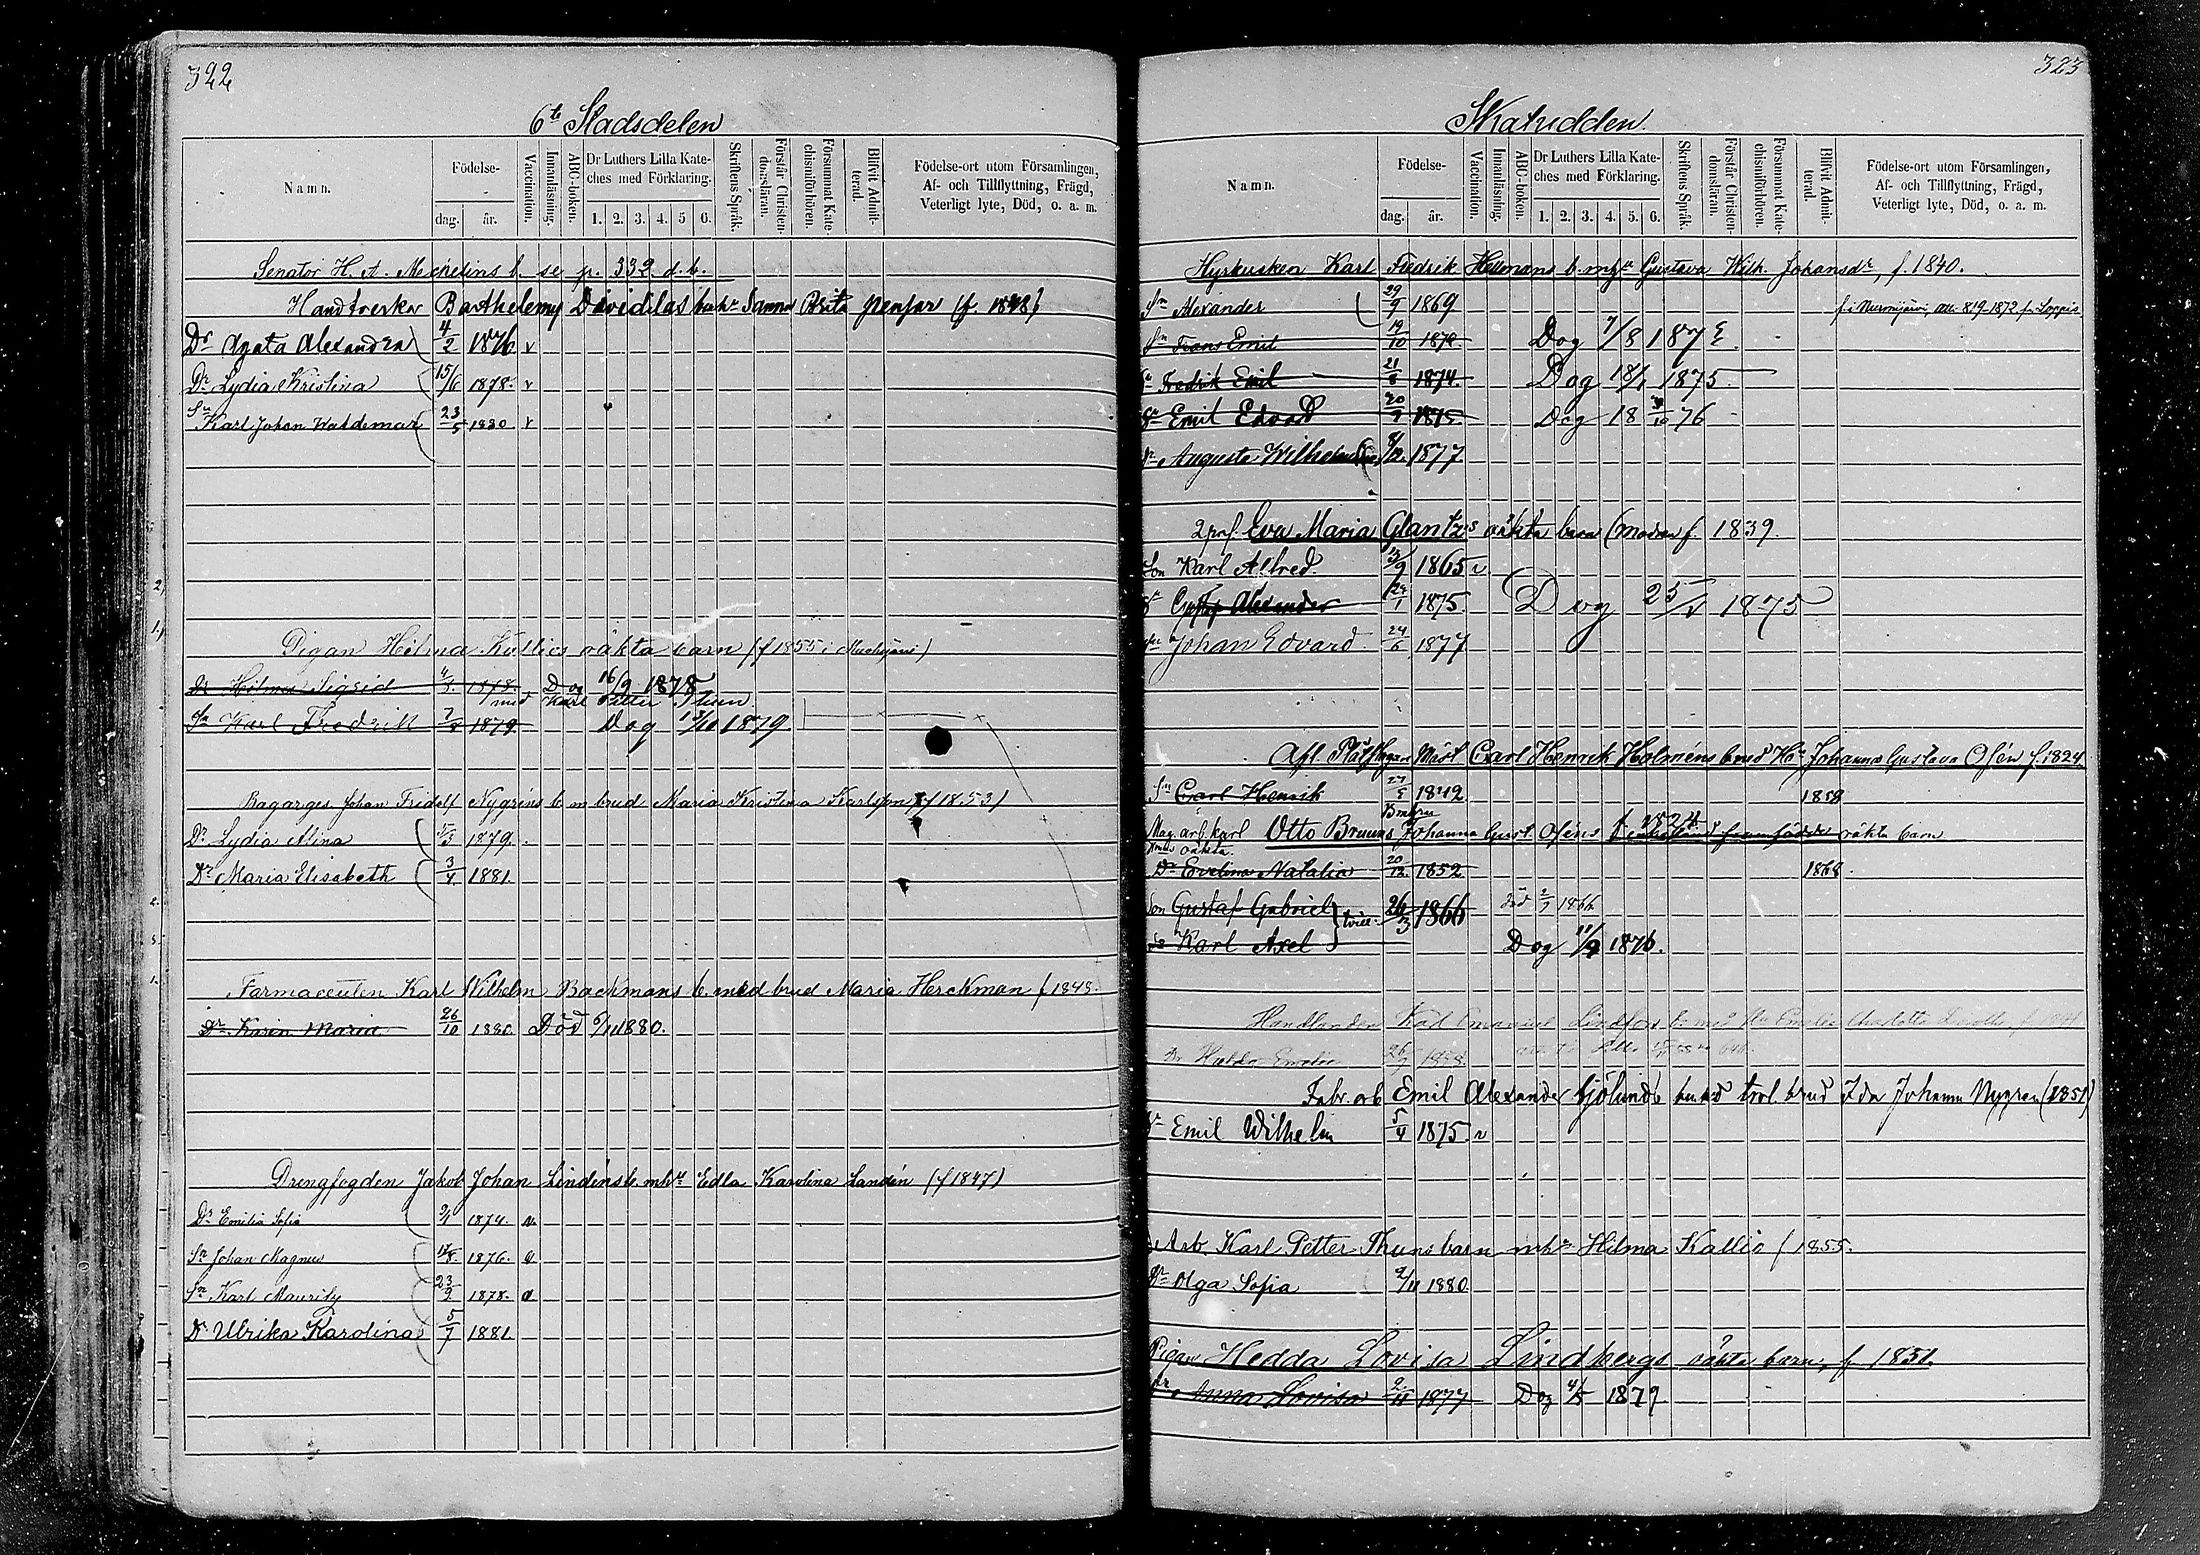 322
6te Stadsdelen
Namn.
Födelse-
dag.
år.
Vaccination.
Innanläsning.
ABC-boken.
Dr Luthers Lilla Kate-
ches med Förklaring.
1. 2. 3. 4. 5 6.
Skriftens Språk.
Förstår Christen-
domsläran.
Försummat Kate-
chismiförhören.
Blifvit Admit-
terad.
Födelse-ort utom Församlingen,
Af- och Tillflyttning, Frägd,
Veterligt lyte, Död, o. a. m.
Senator H. A. Mechelins b. se p. 332 d. b.
Handtverker Barthelemy Davidilas Sanna Brita (f. 1848)
Dr Agata Alexandra 4/2 1876 v
Dr Lydia Kristina 15/6 1878. v
Sn Karl Johan Waldemar 23/5 1880 v
Pigan Hilma Kallios oäkta barn (f 1855 i )
Dr Hilma Sigrid 1878. Dog 16/9 1878
med Karl Petter
Sn Karl Fredrik 1879 Dog 1879
Bagarges. Johan Fridolf Nygréns b. m brud Maria Kristina Karlsson (f 1853)
Dr Lydia Alina 1879.
Dr Maria Elisabeth 3/4 1881.
Farmaceuten Karl Wilhelm Backmans b. med brud Maria Herckman f 1848.
Dr Karin Maria 26/10 1880. Död 1880.
Drengfogden Jakob Johan Lindéns b. mhu Edla Karolina Landén (f 1847)
Dr Emilia Sofia 1874. v.
Sn Johan Magnus 1876. v
Sn Karl Mauritz 23/2 1878. v
Dr Ulrika Karolina 5/7 1881.
323
Skatudden.
Namn.
Födelse-
dag.
år.
Vaccination.
Innanläsning.
ABC-boken.
Dr Luthers Lilla Kate-
ches med Förklaring.
1. 2. 3. 4. 5. 6.
Skriftens Språk.
Förstår Christen-
domsläran.
Försummat Kate-
chismiförhören.
Blifvit Admit-
terad.
Födelse-ort utom Församlingen,
Af- och Tillflyttning, Frägd,
Veterligt lyte, Död, o. a. m.
Hyrkusken Karl Fredrik Hellmans b. mhu Gustava Wilh. Johansdr, f. 1840.
Sn Alexander 29/9 1869 f. i Nurmijärvi, att. 819 1872 fr. Loppis
Sn Frans Emil 19/10 Dog 7/8 187
Sn Fredrik Emil 21/8 1874. Dog 1875
Sn Emil Edvard 20/9 1875. Dog 18 76
Dr Augusta Wilhelmina 1877
Eva Maria Glantz's oäkta barn (modren f. 1839.
Son Karl Alfred. 1865 v
Sn Gustaf Alexander 1875. Dog 25/1 1875
Sn Johan Edvard 24/6 1877
Afl. Carl Henrik Holméns b med Hu Johanna Gustava Ofén f. 1824.
Sn Carl Henrik 1842 1858
Mag. arb. karl Otto Bruuns Johanna Gust. Oféns f 1824 oäkta barn
oäkta
Dr Evelina Natalia 20/12 1852 1868.
Son Gustaf Gabriel tvill. 26/3 1866 död 2/7 1866
do Karl Axel Dog 1876.
Handlanden Karl Emanuel Lindfors
Dr Hulda 26/9 1858
Fabr. arb Emil Alexander Sjölunds b med trol. brud Ida Johanna Nygren (1851)
Sn Emil Wilhelm 5/4 1875. v
Arb. Karl Petter Thuns barn mhu Hilma Kallio f 1855.
Dr Olga Sofia 9/11 1880.
Pigan Hedda Lovisa Lindbergs oäkta barn, f. 1851.
Dr Anna Lovisa 2/11 1877 Dog 4/5 1879